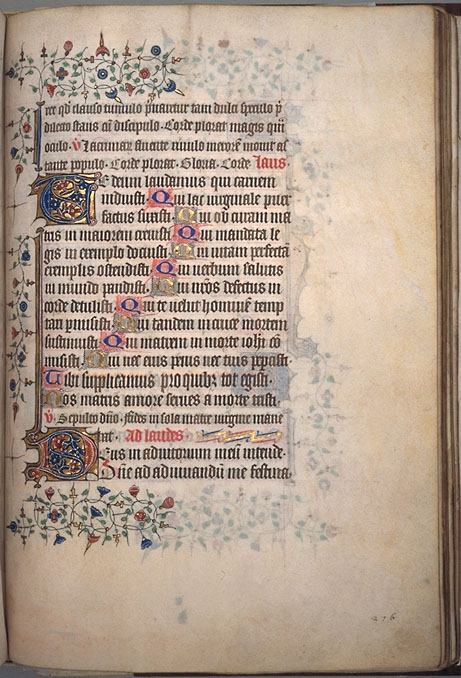 re qd clauso tumulo privaretur tam dulci speculo
dilecto stans cu discipulo. Corde plorat magis qui
oculo. V
tante populo. Corde plorat. Gloria. Corde. Laus.
Te deum laudamus qui carnem
induisti. Qui lac virginale puer
factus suxisti. Qui ob curam ma
tris in maiorem crevisti. Qui mandata le
gis in exemplo docuisti. Qui vitam perfectam
exemplis ostendisti. Qui verbum salutis
in mundo pandisti. Qui nros defectus in
corde detulisti. Qui te velut homine temp
tari pmisisti. Qui tandem in cruce mortem
sustinuisti. Qui matrem in morte iohi co
misisti. Qui nec eius penis nec tuis pepcisti.
Tibi supplicamus pro quibz tot egisti.
Nos matris amore serves a morte tristi.
V. Sepulto dno. fides in sola matre virgine mane
bat. Ad laudes
Deus in adiutorium meu intende.
Dne ad adiuvandu me festina.
276